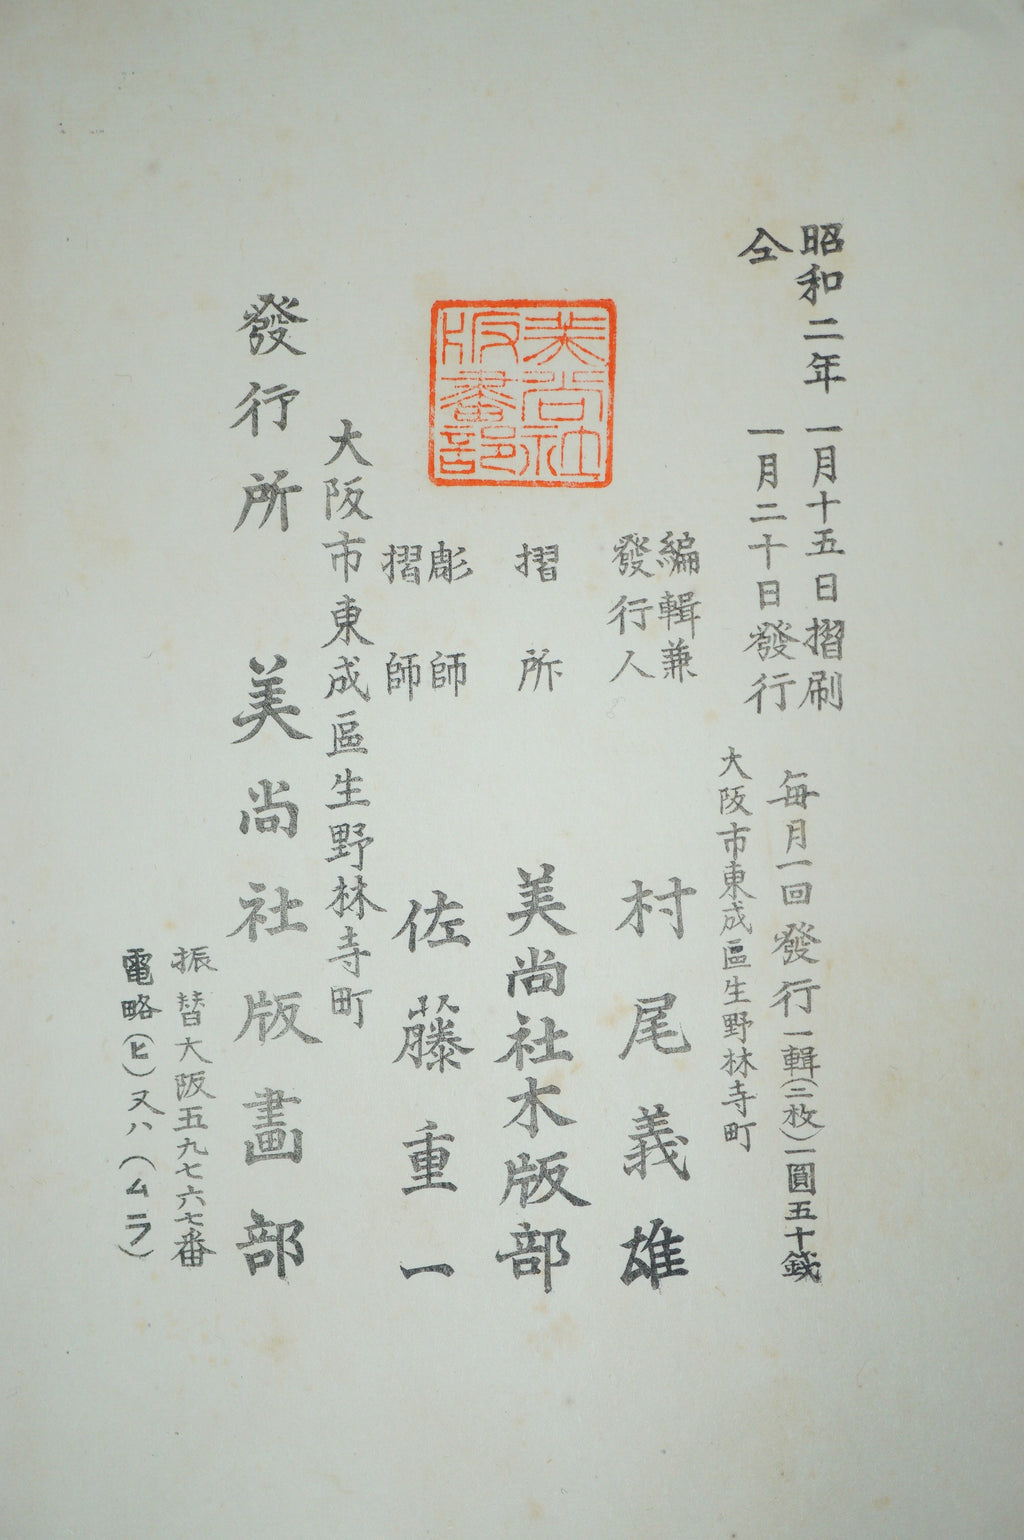 昭和二年 一月十五日摺刷
仝 一月二十日發行
每月一回發行一輯(二枚)一圓五十錢
大阪市東成區生野林寺町
編輯兼
發行人
村尾義雄
摺所 美尚社木版部
彫師
摺師
佐藤重一
美尚社
版畫部
大阪市東成區生野林寺町
發行所 美尚社版畫部
振替大阪五九七六七番
電略(ヒ)又ハ(ムラ)